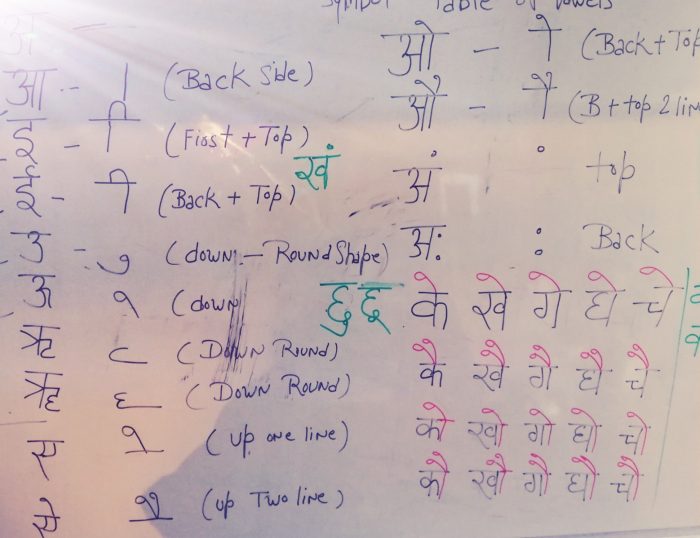 Symbol Table of Vowels
अ -
आ - ा (Back Side)
इ - ि (First + Top)
ई - ी (Back + Top)
उ - ु (down - Round Shape)
ऊ ू (down)
ऋ ृ (Down Round)
ॠ ॄ (Down Round)
े (up one line)
ै (up Two line)
खं
छु छू
ओ - ो (Back + Top
औ - ौ (B + top 2 lin
अं ं top
अः : Back
के खे गे घे चे
कै खै गै घै चै
को खो गो घो चो
कौ खौ गौ घौ चौ